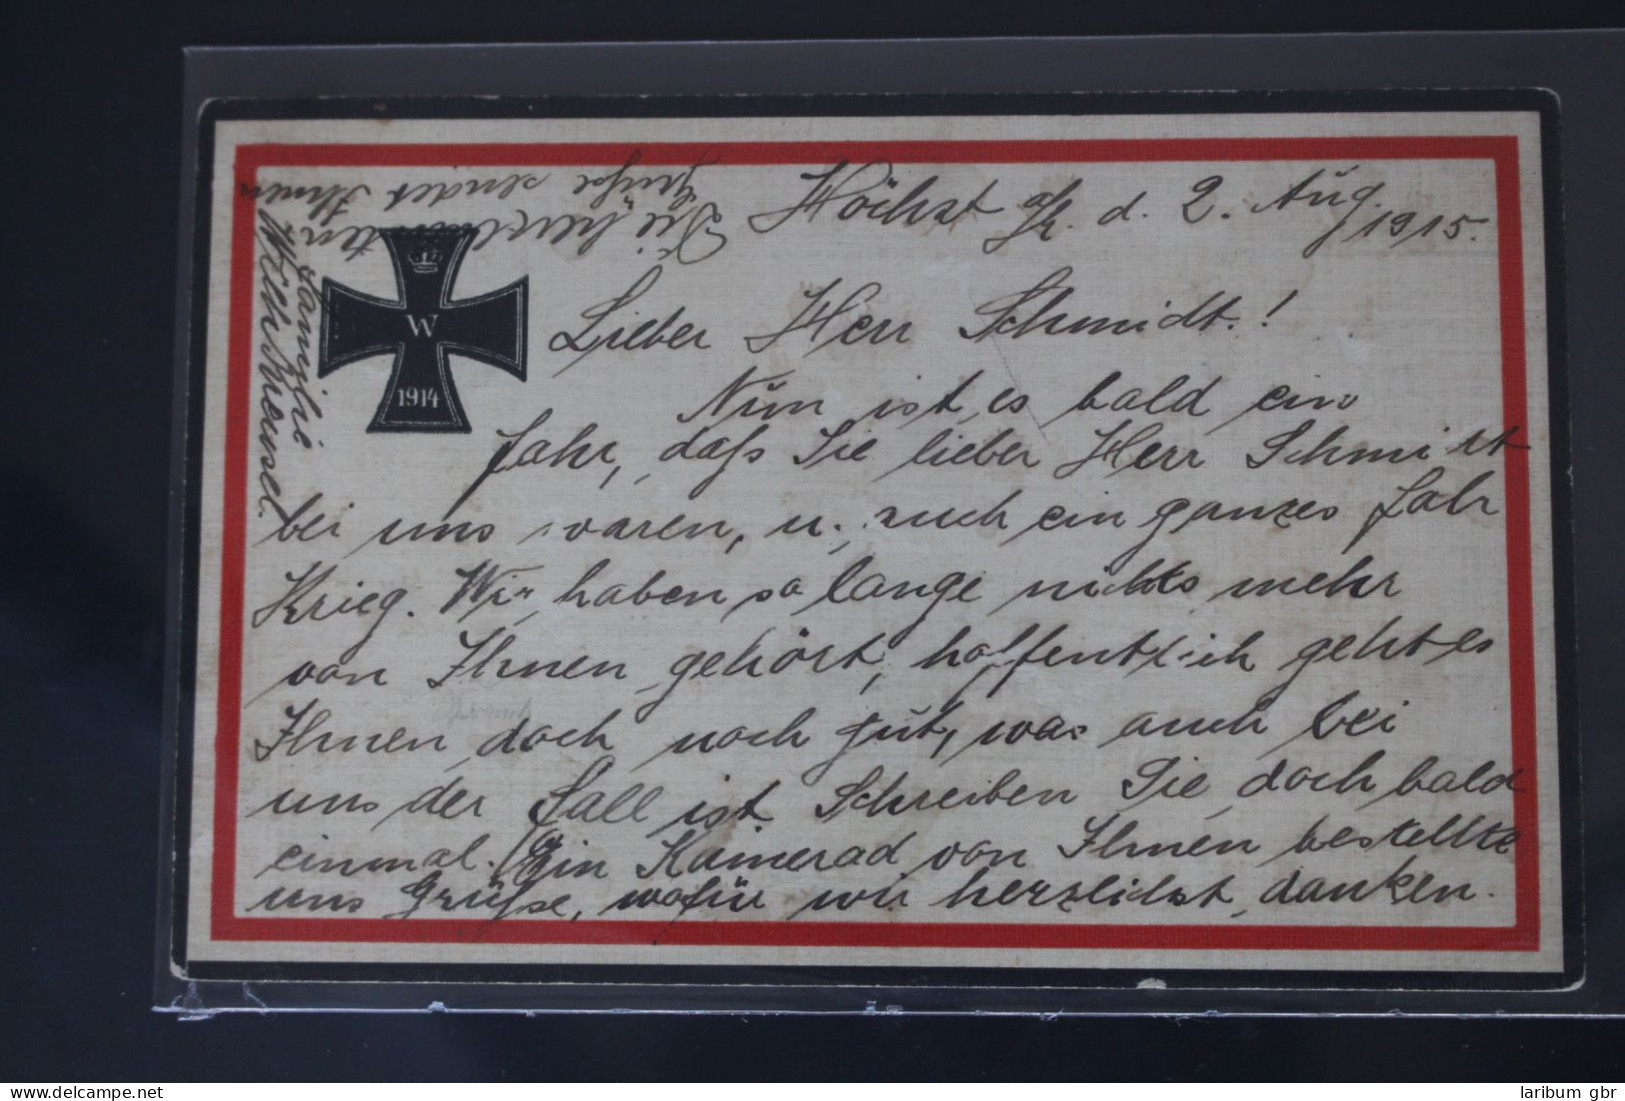 Höchst a/K. d. 2. Aug.
1915.
Lieber Herr Schmidt.!
Nŭn ist es bald ein
Jahr, daß Sie lieber Herr Schmidt
bei uns waren, u. auch ein ganzes Jahr
Krieg. Wir haben so lange nichts mehr
von Ihnen gehört, hoffentlich geht es
Ihnen doch noch gŭt, was auch bei
uns der Fall ist Schreiben Sie doch bald
einmal. Ein Kamerad von Ihnen bestellte
uns Grüße, wofür wir herzlichst danken.
Die herzlichsten
Grüße sendet Ihnen
Familie
Wilh.
W
1914
laribum gbr